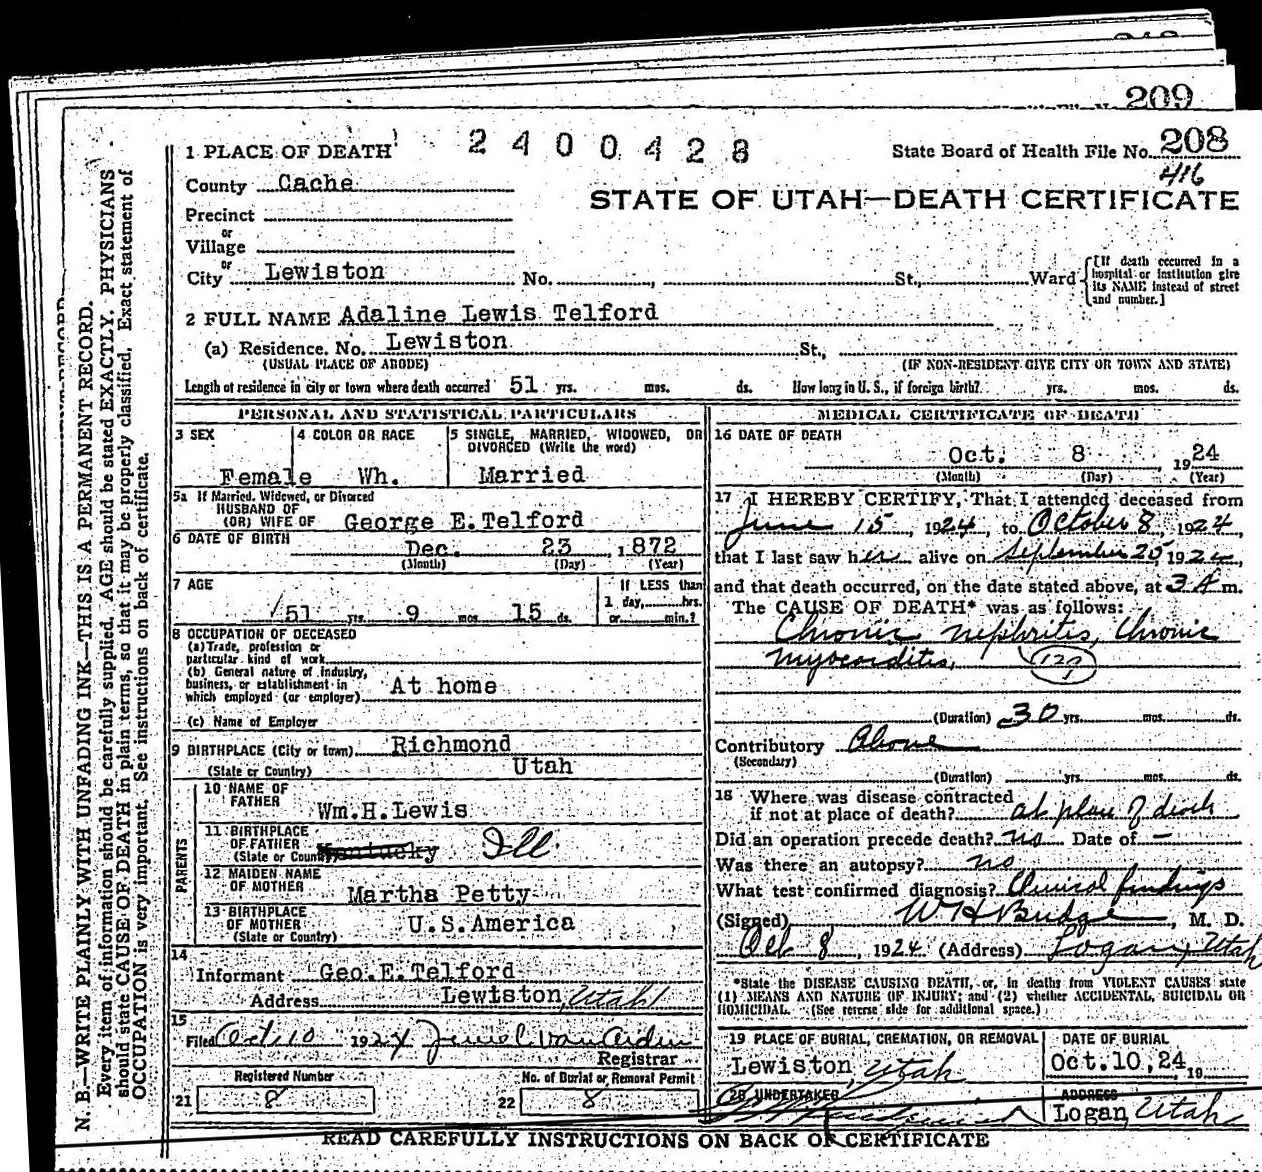 209
1 PLACE OF DEATH 2400428 State Board of Health File No. 208
416
County Cache
STATE OF UTAH—DEATH CERTIFICATE
Precinct
or
Village
or
City Lewiston No. , St., Ward {[If death occurred in a hospital or institution give its NAME instead of street and number.]
2 FULL NAME Adaline Lewis Telford
(a) Residence. No. Lewiston St.,
(USUAL PLACE OF ABODE) (IF NON-RESIDENT GIVE CITY OR TOWN AND STATE)
Length of residence in city or town where death occurred 51 yrs. mos. ds. How long in U. S., if foreign birth? yrs. mos. ds.
PERSONAL AND STATISTICAL PARTICULARS
3 SEX 4 COLOR OR RACE 5 SINGLE, MARRIED, WIDOWED, OR
DIVORCED (Write the word)
Female Wh. Married
5a If Married, Widowed, or Divorced
HUSBAND OF
(OR) WIFE OF George E. Telford
6 DATE OF BIRTH Dec. 23, 1872
(Month) (Day) (Year)
7 AGE If LESS than
1 day, hrs.
51 yrs. 9 mos. 15 ds. or min.?
8 OCCUPATION OF DECEASED
(a) Trade, profession or
particular kind of work
(b) General nature of industry,
business, or establishment in
which employed (or employer) At home
(c) Name of Employer
9 BIRTHPLACE (City or town) Richmond
(State or Country) Utah
PARENTS
10 NAME OF
FATHER Wm. H. Lewis
11 BIRTHPLACE
OF FATHER
(State or Country) Kentucky Ill.
12 MAIDEN NAME
OF MOTHER Martha Petty
13 BIRTHPLACE
OF MOTHER U.S.America
(State or Country)
14
Informant Geo. E. Telford
Address Lewiston, Utah
15
Filed Oct. 10 1924
Registrar
Registered Number No. of Burial or Removal Permit
21 8 22 8
MEDICAL CERTIFICATE OF DEATH
16 DATE OF DEATH
Oct. 8 1924
(Month) (Day) (Year)
17 I HEREBY CERTIFY, That I attended deceased from
June 15, 1924, to October 8, 1924,
that I last saw her alive on September 25, 1924,
and that death occurred, on the date stated above, at 3 A m.
The CAUSE OF DEATH* was as follows:
Chronic nephritis, Chronic
myocarditis,
(Duration) 30 yrs. mos. ds.
Contributory Above
(Secondary)
(Duration) yrs. mos. ds.
18 Where was disease contracted
if not at place of death? at place of death
Did an operation precede death? no Date of —
Was there an autopsy? no
What test confirmed diagnosis? Clinical findings
(Signed) W H Budge, M. D.
Oct 8, 1924 (Address) Logan, Utah
*State the DISEASE CAUSING DEATH, or, in deaths from VIOLENT CAUSES state
(1) MEANS AND NATURE OF INJURY; and (2) whether ACCIDENTAL, SUICIDAL OR
HOMICIDAL. (See reverse side for additional space.)
19 PLACE OF BURIAL, CREMATION, OR REMOVAL DATE OF BURIAL
Lewiston, Utah Oct. 10, 24, 19
20 UNDERTAKER ADDRESS
Logan, Utah
READ CAREFULLY INSTRUCTIONS ON BACK OF CERTIFICATE
N. B.—WRITE PLAINLY WITH UNFADING INK—THIS IS A PERMANENT RECORD.
Every item of information should be carefully supplied. AGE should be stated EXACTLY. PHYSICIANS
should state CAUSE OF DEATH in plain terms, so that it may be properly classified. Exact statement of
OCCUPATION is very important. See instructions on back of certificate.